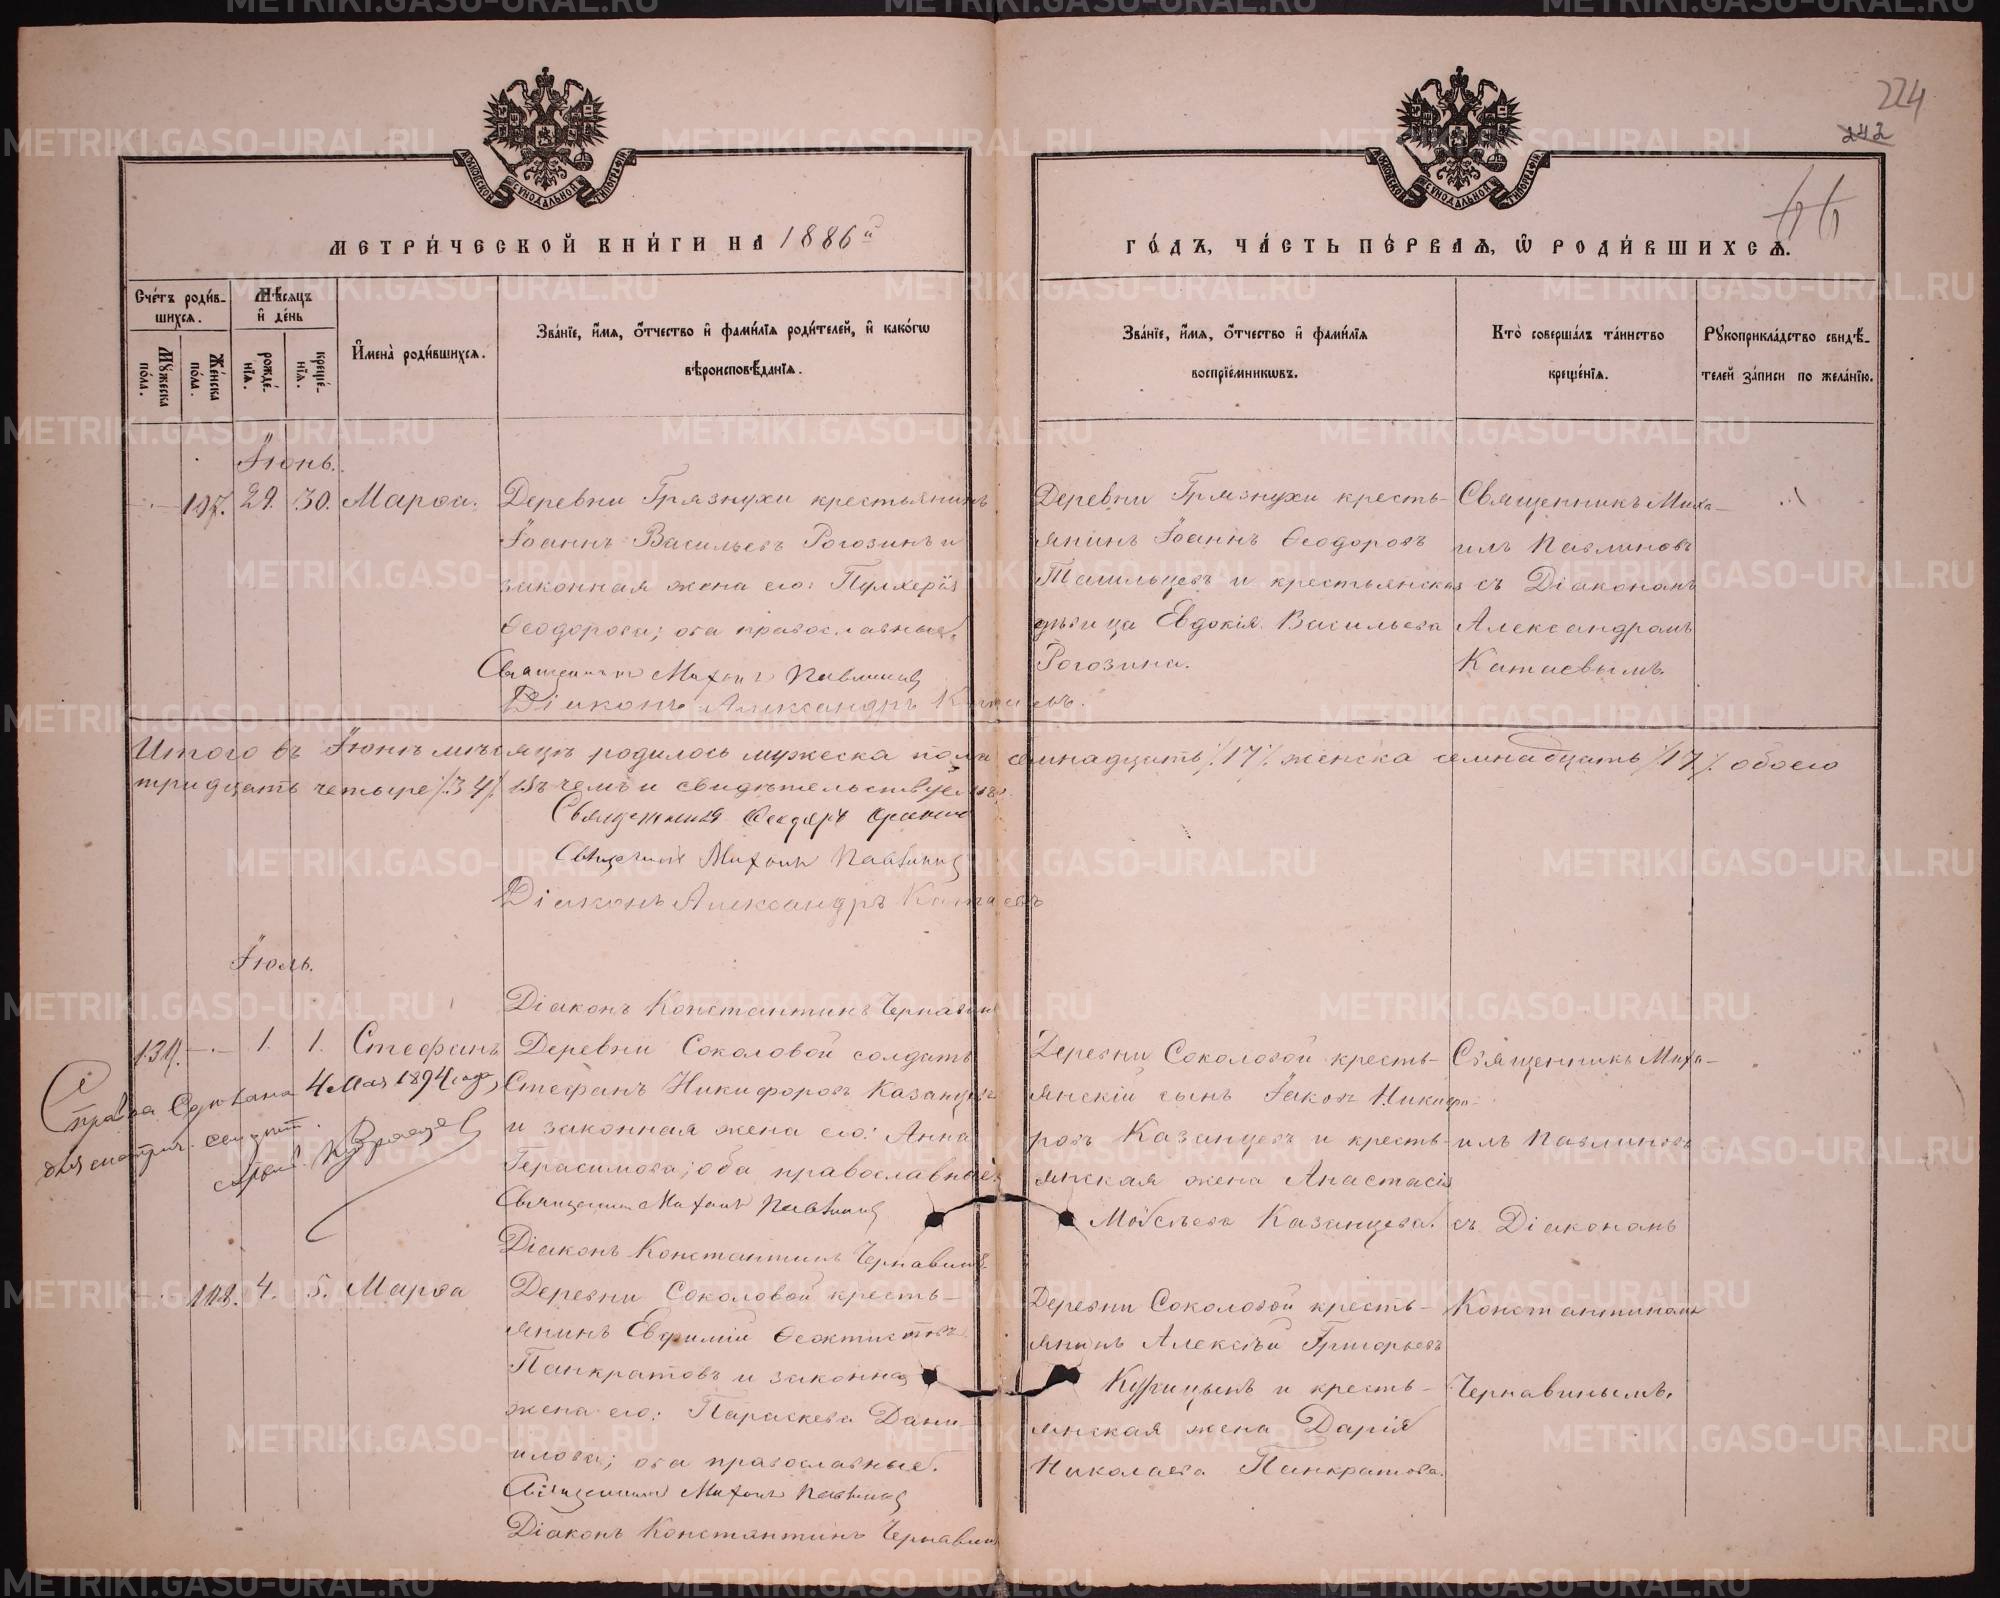 224
242
МЕТРИ́ЧЕСКОЙ КНИ́ГИ НА 1886й
ГО́ДЪ, ЧА́СТЬ ПЕ́РВАѦ, Ѡ РОДИ́ВШИХСѦ.
Сче́тъ роди́в-
шихсѧ.
Мѣ́сѧцъ
и҆ де́нь
Мꙋжеска по́ла.
Же́нска по́ла.
рожде́-
нїѧ.
креще́-
нїѧ.
И҆мена̀ роди́вшихсѧ.
Зва́нїе, и҆́мѧ, о҆́тчество и҆ фами́лїѧ роди́телей, и҆ како́гѡ
вѣроисповѣ́данїѧ.
Зва́нїе, и҆́мѧ, о҆́тчество и҆ фами́лїѧ
воспрїе́мникѡвъ.
Кто̀ соверша́лъ та́инство
креще́нїѧ.
Рꙋкоприкла́дство свидѣ́-
телей за́писи по жела́нїю.
Іюнь.
107. 29. 30. Марѳа.
Деревни Грязнухи крестьянинъ
Іоаннъ Васильевъ Рогозинъ и
законная жена его: Пулхерія
Ѳеодорова; оба православные.
Священникъ Михаилъ Павлиновъ
Діаконъ Александръ Катаевъ.
Деревни Грязнухи кресть-
янинъ Іоаннъ Ѳеодоровъ
и крестьянская
дѣвица Евдокія Васильева
Рогозина.
Священникъ Миха-
илъ Павлиновъ
съ Діакономъ
Александромъ
Катаевымъ.
Итого въ Іюнѣ мѣсяцѣ родилось мужеска пола семнадцать /17/ женска семнадцать /17/. обоего
тридцать четыре /34/. Въ чемъ и свидѣтельствуемъ:
Священникъ Ѳеодоръ
Священникъ Михаилъ Павлиновъ
Діаконъ Александръ Катаевъ
Іюль.
Діаконъ Константинъ Чернавинъ
1. 1. Стефанъ
Деревни Соколовой солдатъ
Стефанъ Никифоровъ Казанцевъ
и законная жена его: Анна
Герасимова; оба православные.
Священникъ Михаилъ Павлиновъ
Діаконъ Константинъ Чернавинъ
4 Мая 1894 года,
Деревни Соколовой кресть-
янскій сынъ Іаковъ Никифо-
ровъ Казанцевъ и кресть-
янская жена Анастасія
Моѵсѣева Казанцева.
Священникъ Миха-
илъ Павлиновъ
съ Діакономъ
108. 4. 5. Марѳа
Деревни Соколовой кресть-
янинъ Евфимій Ѳеоктистовъ
Панкратовъ и законная
жена его: Параскева Дани-
илова; оба православные.
Священникъ Михаилъ Павлиновъ
Діаконъ Константинъ Чернавинъ
Деревни Соколовой кресть-
янинъ Алексѣй Григорьевъ
Курицынъ и кресть-
янская жена Дарія
Николаева Панкратова.
Константиномъ
Чернавинымъ.
METRIKI.GASO-URAL.RU